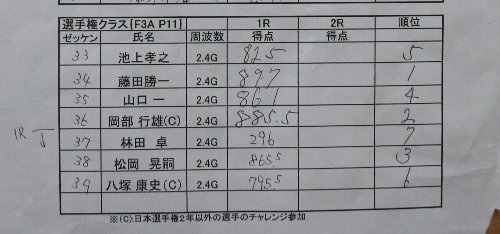 選手権クラス[F3A P11] 1R 2R 順位
ゼッケン 氏名 周波数 得点 得点
33 池上孝之 2.4G 825 5
34 藤田勝一 2.4G 897 1
35 山口 一 2.4G 861 4
36 岡部 行雄(C) 2.4G 885.5 2
1R 37 林田 卓 2.4G 296 7
38 松岡 晃嗣 2.4G 865.5 3
39 八塚 康史(C) 2.4G 795.5 6
※(C):日本選手権2年以外の選手のチャレンジ参加